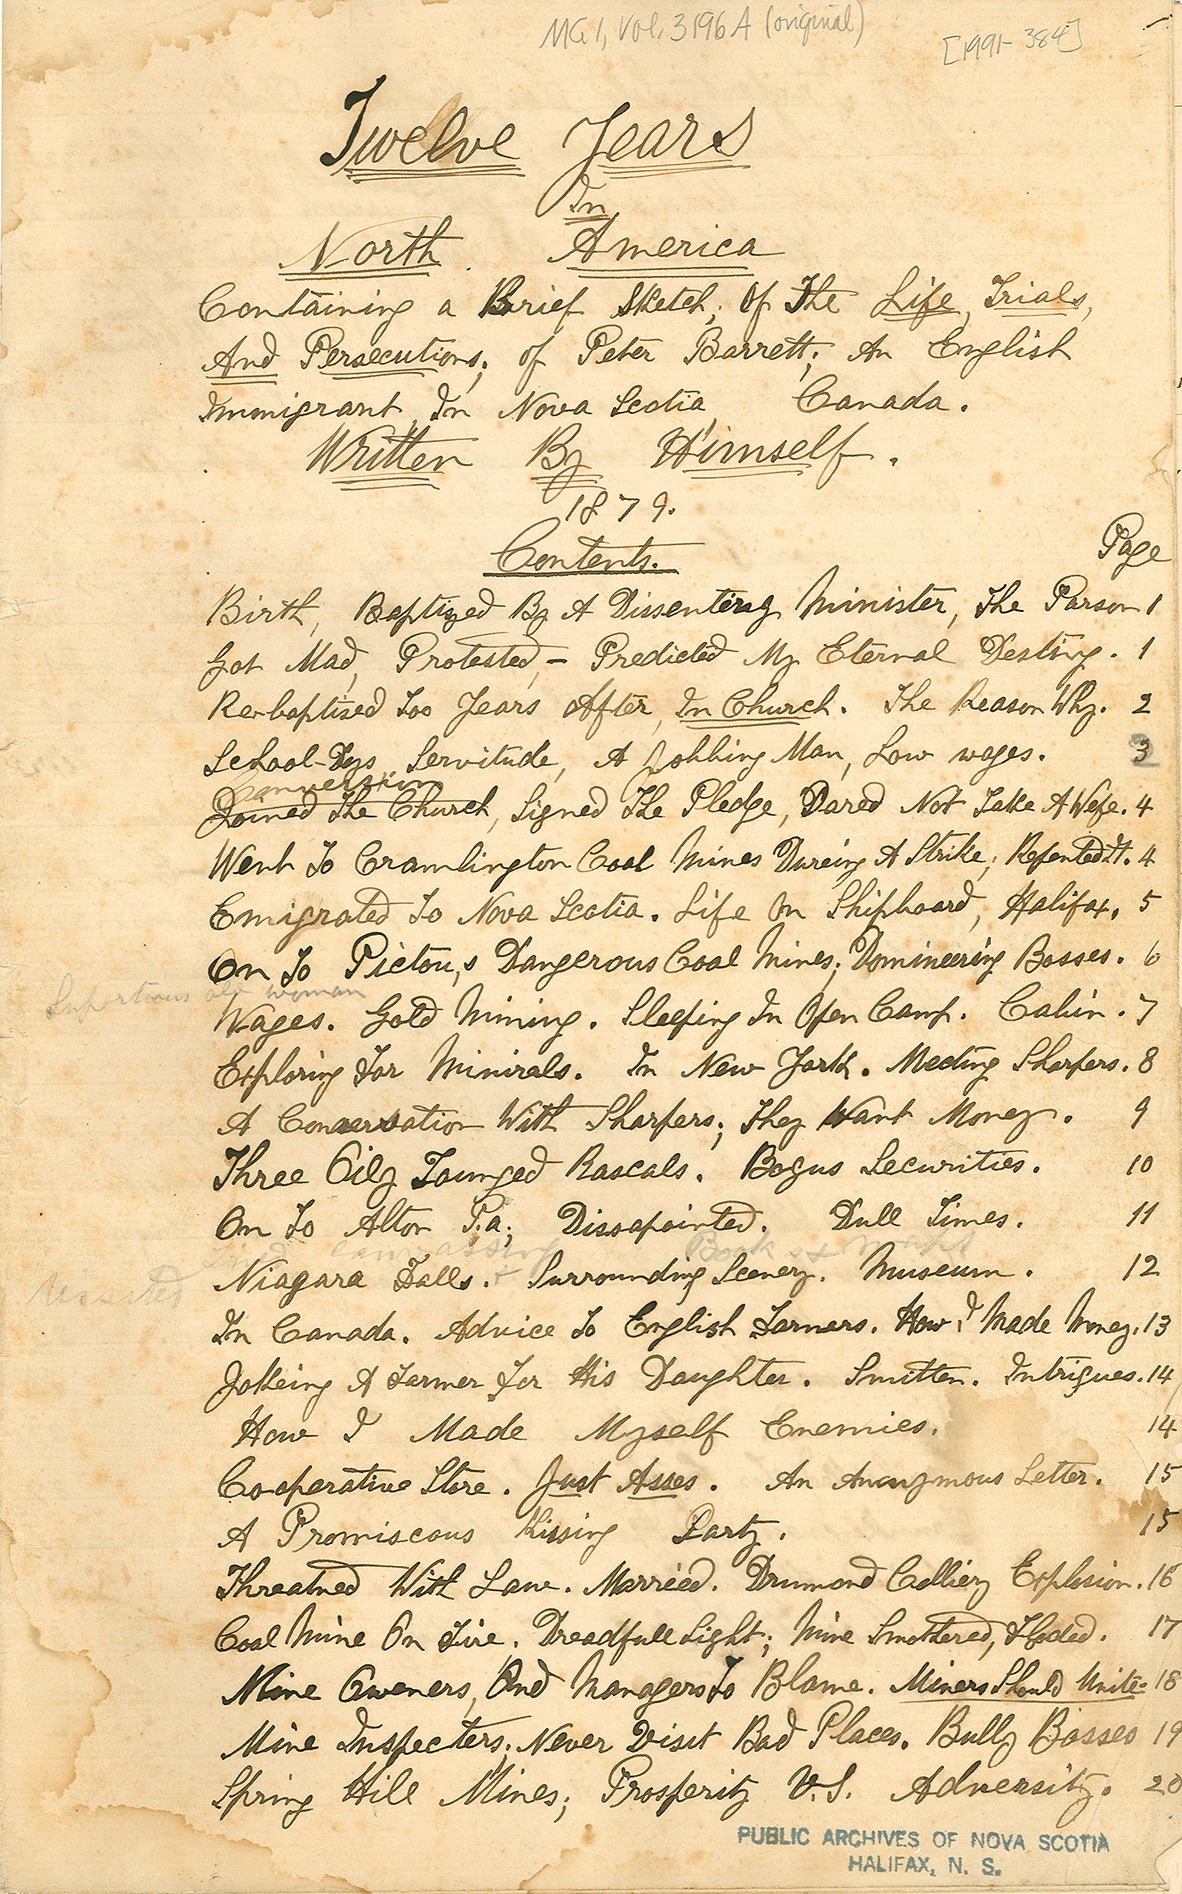 MG 1, Vol. 3196 A (original)
[1991-384]
Twelve Years
In
North America
Containing a Brief Sketch, Of The Life, Trials,
And Persecutions, of Peter Barrett; An English
Immigrant, In Nova Scotia Canada.
Written By Himself.
1879.
Contents.
Page
Birth, Baptized By A Dissenting Minister, The Parson 1
Got Mad, Protested, – Predicted My Eternal Destiny. 1
Re-baptised Too Years After, In Church. The Reason Why. 2
School-Dys Servitude, A Jobbing Man, Low wages. 3
Conversion
Joined The Church, Signed The Pledge, Dared Not Take A Wife. 4
Went To Cramlington Coal Mines Dureing A Strike; Repented It. 4
Emigrated To Nova Scotia. Life On Shipboard, Halifax. 5
On To Pictou,s Dangerous Coal Mines; Domineering Bosses. 6
old woman
Wages. Gold Mining. Sleeping In Open Camp. Cabin. 7
Exploring For Minirals. In New York. Meeting Sharpers. 8
A Conversation With Sharpers; They Want Money. 9
Three Oily Tounged Rascals. Bogus Securities. 10
On To Alton P.a; Dissapointed. Dull Times. 11
canvassing Books & Maps
Niagara Falls. + Surrounding Scenery. Museum. 12
In Canada. Advice To English Farmers. How I Made Money. 13
Jokeing A Farmer For His Daughter. Smitten. Intrigues. 14
How I Made Myself Enemies. 14
Co-operative Store. Just Asses. An Anonymous Letter. 15
A Promiscous Kissing Party. 15
Threatned With Law. Married. Drumond Colliery Explosion. 16
Coal Mine On Fire. Dreadfull Sight; Mine Smothered, Floded. 17
Mine Oweners, And Managers To Blame. Miners Should Unite. 18
Mine Inspecters, Never Visit Bad Places. Bully Bosses 19
Spring Hill Mines; Prosperity V.S. Adversity. 20
PUBLIC ARCHIVES OF NOVA SCOTIA
HALIFAX, N. S.